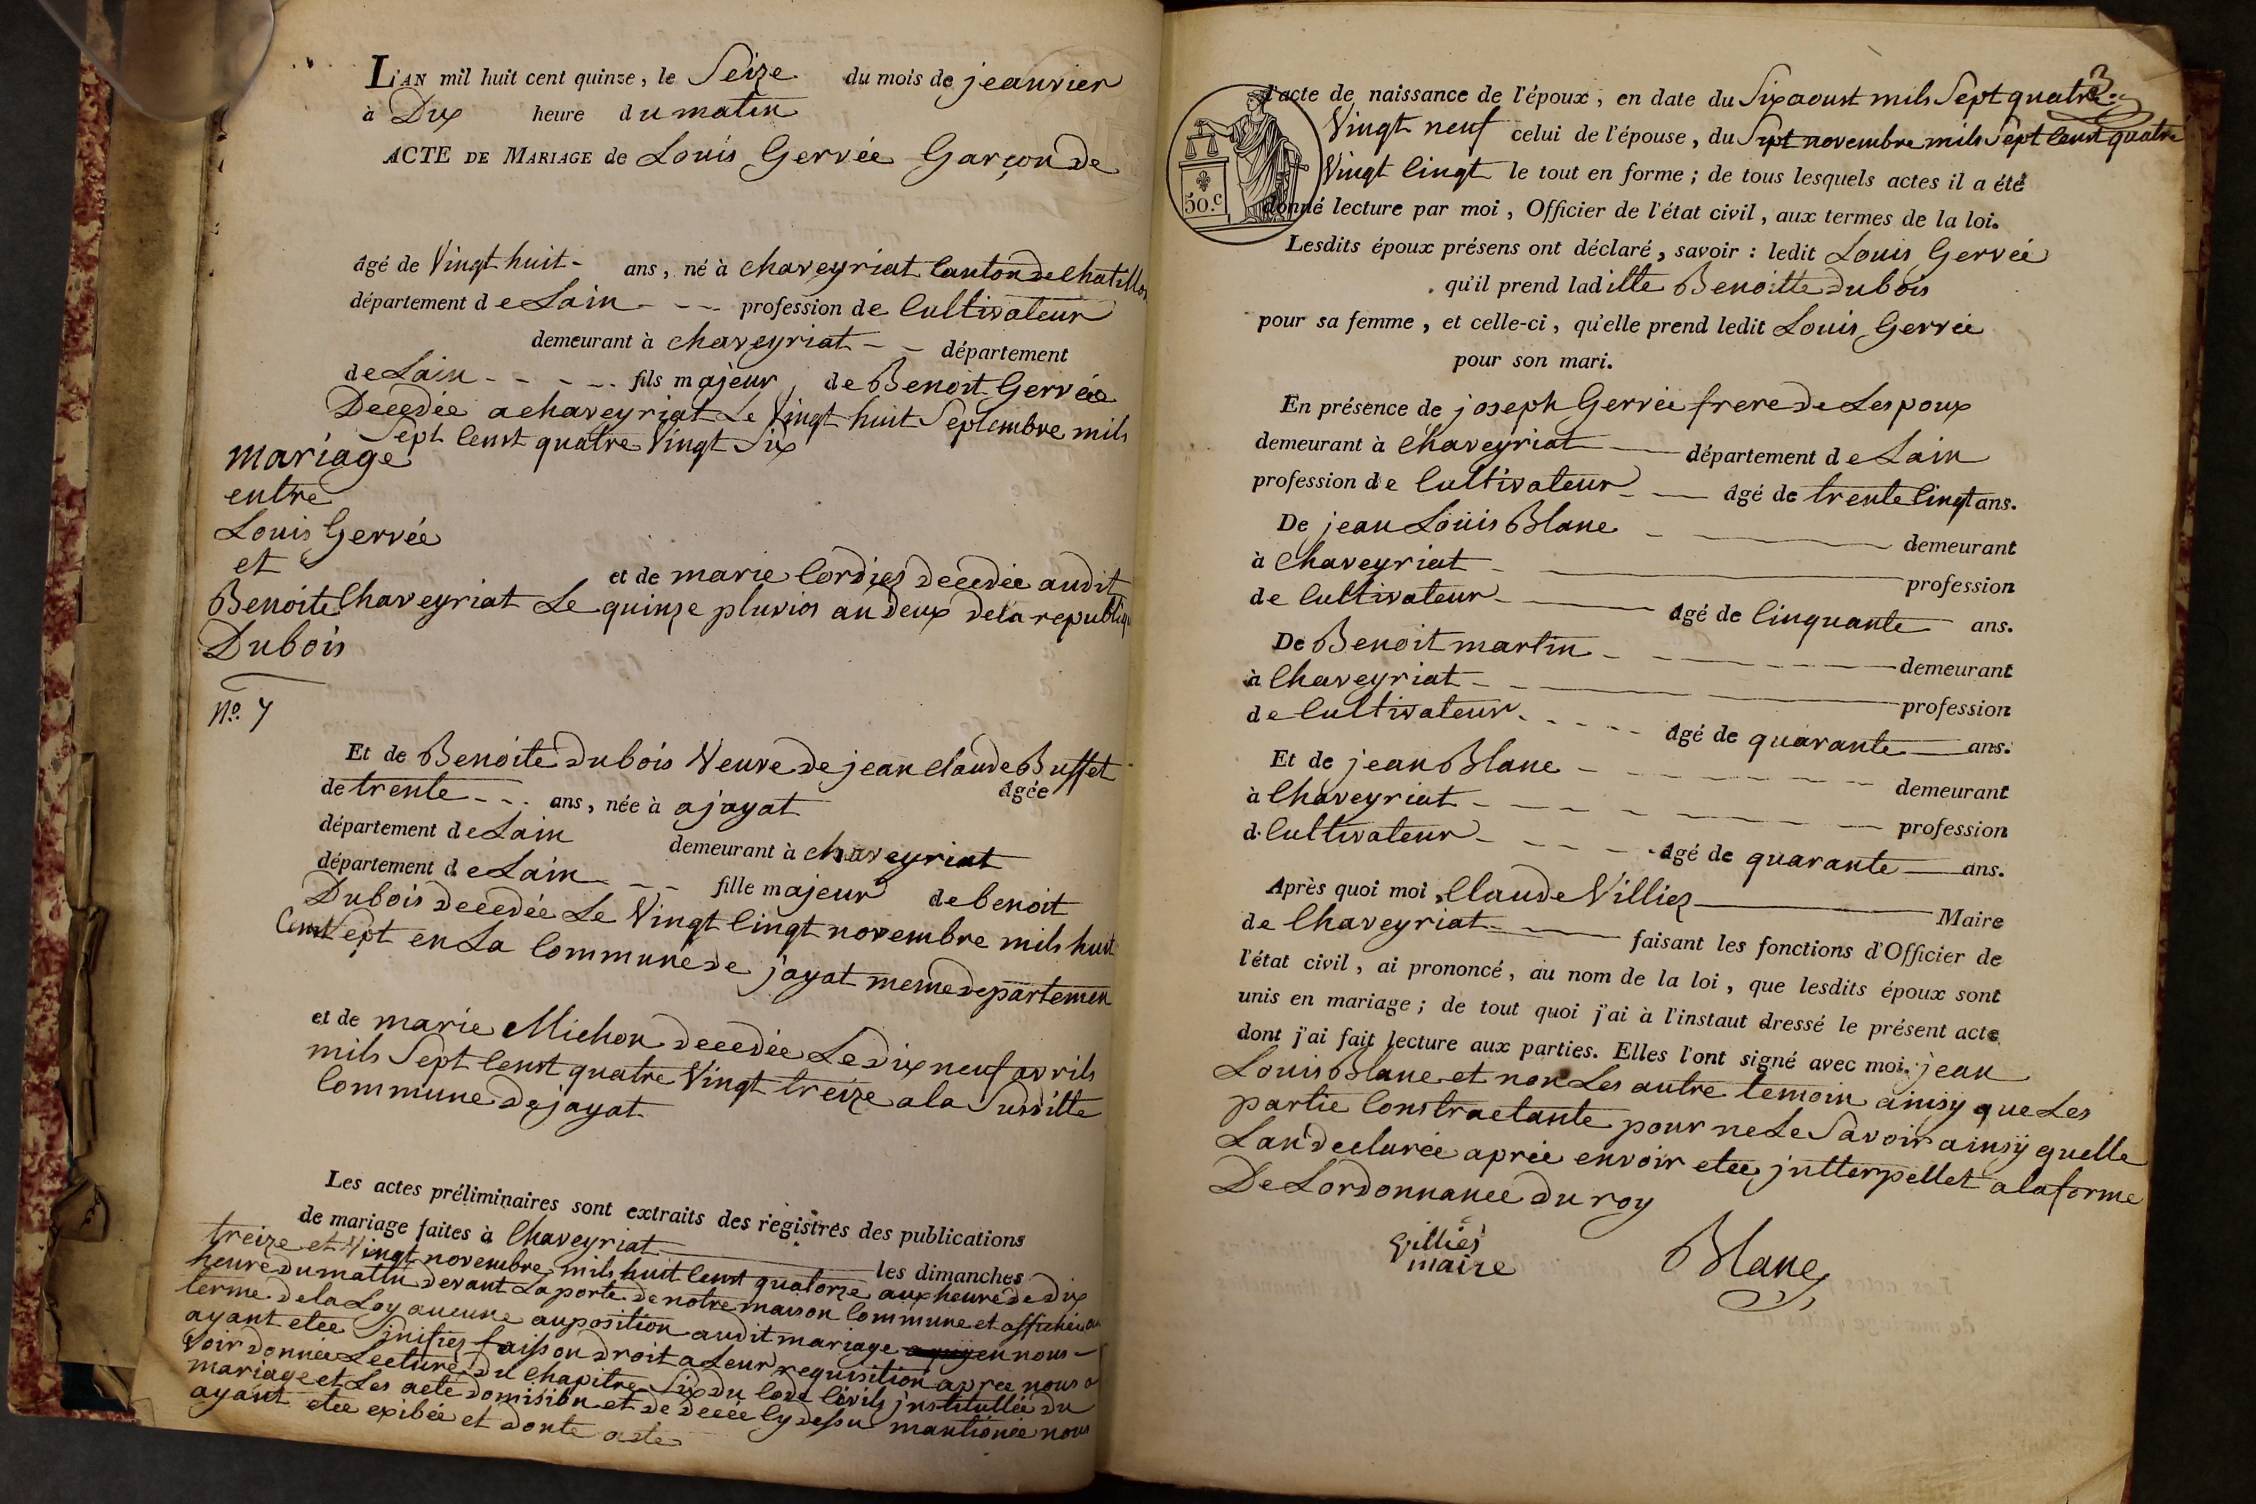 L'AN mil huit cent quinze, le Seize du mois de jeanvier
à Dix heure du matin
ACTE DE MARIAGE de Louis Gervée Garçon de
âgé de Vingt huit - ans, né à chaveyriat Canton de chatillon
département de Lain - - - profession de Cultivateur
demeurant à chaveyriat - - département
de Lain - - - - - fils majeur, de Benoit Gervée
Decedée a chaveyriat Le Vingt huit Septembre mils
Sept Censt quatre Vingt Six
mariage
entre
Louis Gervée
et
Benoite
Dubois
No. 7
et de marie Cordier decedée audit
Chaveyriat Le quinze pluvios an deux dela republiq
Et de Benoite dubois Veuve de jean claude Buffet
âgée
de trente - - - ans, née à a jayat
département de Lain demeurant à chaveyriat
département de Lain - - fille majeur de benoit
Dubois decedée Le Vingt Cingt novembre mils huit
Censt Sept en La Commune de jayat meme departemen
et de marie Michon decedée Le dix neuf avrils
mils Sept Censt quatre Vingt treize a la Susditte
Commune de jayat
Les actes préliminaires sont extraits des registres des publications
de mariage faites à Chaveyriat les dimanches
treize et Vingt novembre mils huit Censt quatorze aux heure de dix
heure du mattin devant La porte de notre maison Commune et affichée au
terme de la Loy aucune auposition audit mariage en nous
ayant etée Sinifies faisson droit a Leur requisition apree nous a
Voir donnée Lecture du Chapitre Six du Code Civils jnstitullée du
mariage et Les acte domision et de deceé Cy dessu mantionée nous
ayant etee exibée et donte acte
3
l'acte de naissance de l'époux, en date du Six aoust mils Sept quatre
Vingt neuf celui de l'épouse, du Sept novembre mils Sept Censt quatre
Vingt Cingt le tout en forme; de tous lesquels actes il a été
donné lecture par moi, Officier de l'état civil, aux termes de la loi.
50.c
Lesdits époux présens ont déclaré, savoir : ledit Louis Gervée
qu'il prend laditte Benoitte dubois
pour sa femme, et celle-ci, qu'elle prend ledit Louis Gervée
pour son mari.
En présence de joseph Gervée frere de Lespoux
demeurant à Chaveyriat département de Lain
profession de Cultivateur âgé de trente Cingt ans.
De jean Loüis Blanc demeurant
à Chaveyriat profession
de Cultivateur âgé de Cinquante ans.
De Benoit martin demeurant
à Chaveyriat profession
de Cultivateur âgé de quarante ans.
Et de jean Blanc demeurant
à Chaveyriat profession
d. Cultivateur âgé de quarante ans.
Après quoi moi, Claude Villier Maire
de Chaveyriat faisant les fonctions d'Officier de
l'état civil, ai prononcé, au nom de la loi, que lesdits époux sont
unis en mariage; de tout quoi j'ai à l'instaut dressé le présent acte
dont j'ai fait lecture aux parties. Elles l'ont signé avec moi. jean
Louis Blanc et non Les autre temoin ainsy que Les
partie Constractante pour ne Le Savoir ainsÿ quelle
Lan declarée aprée envoir etee jntterpellet a la forme
De Lordonnance du roy
Villiés
maire
Blanc